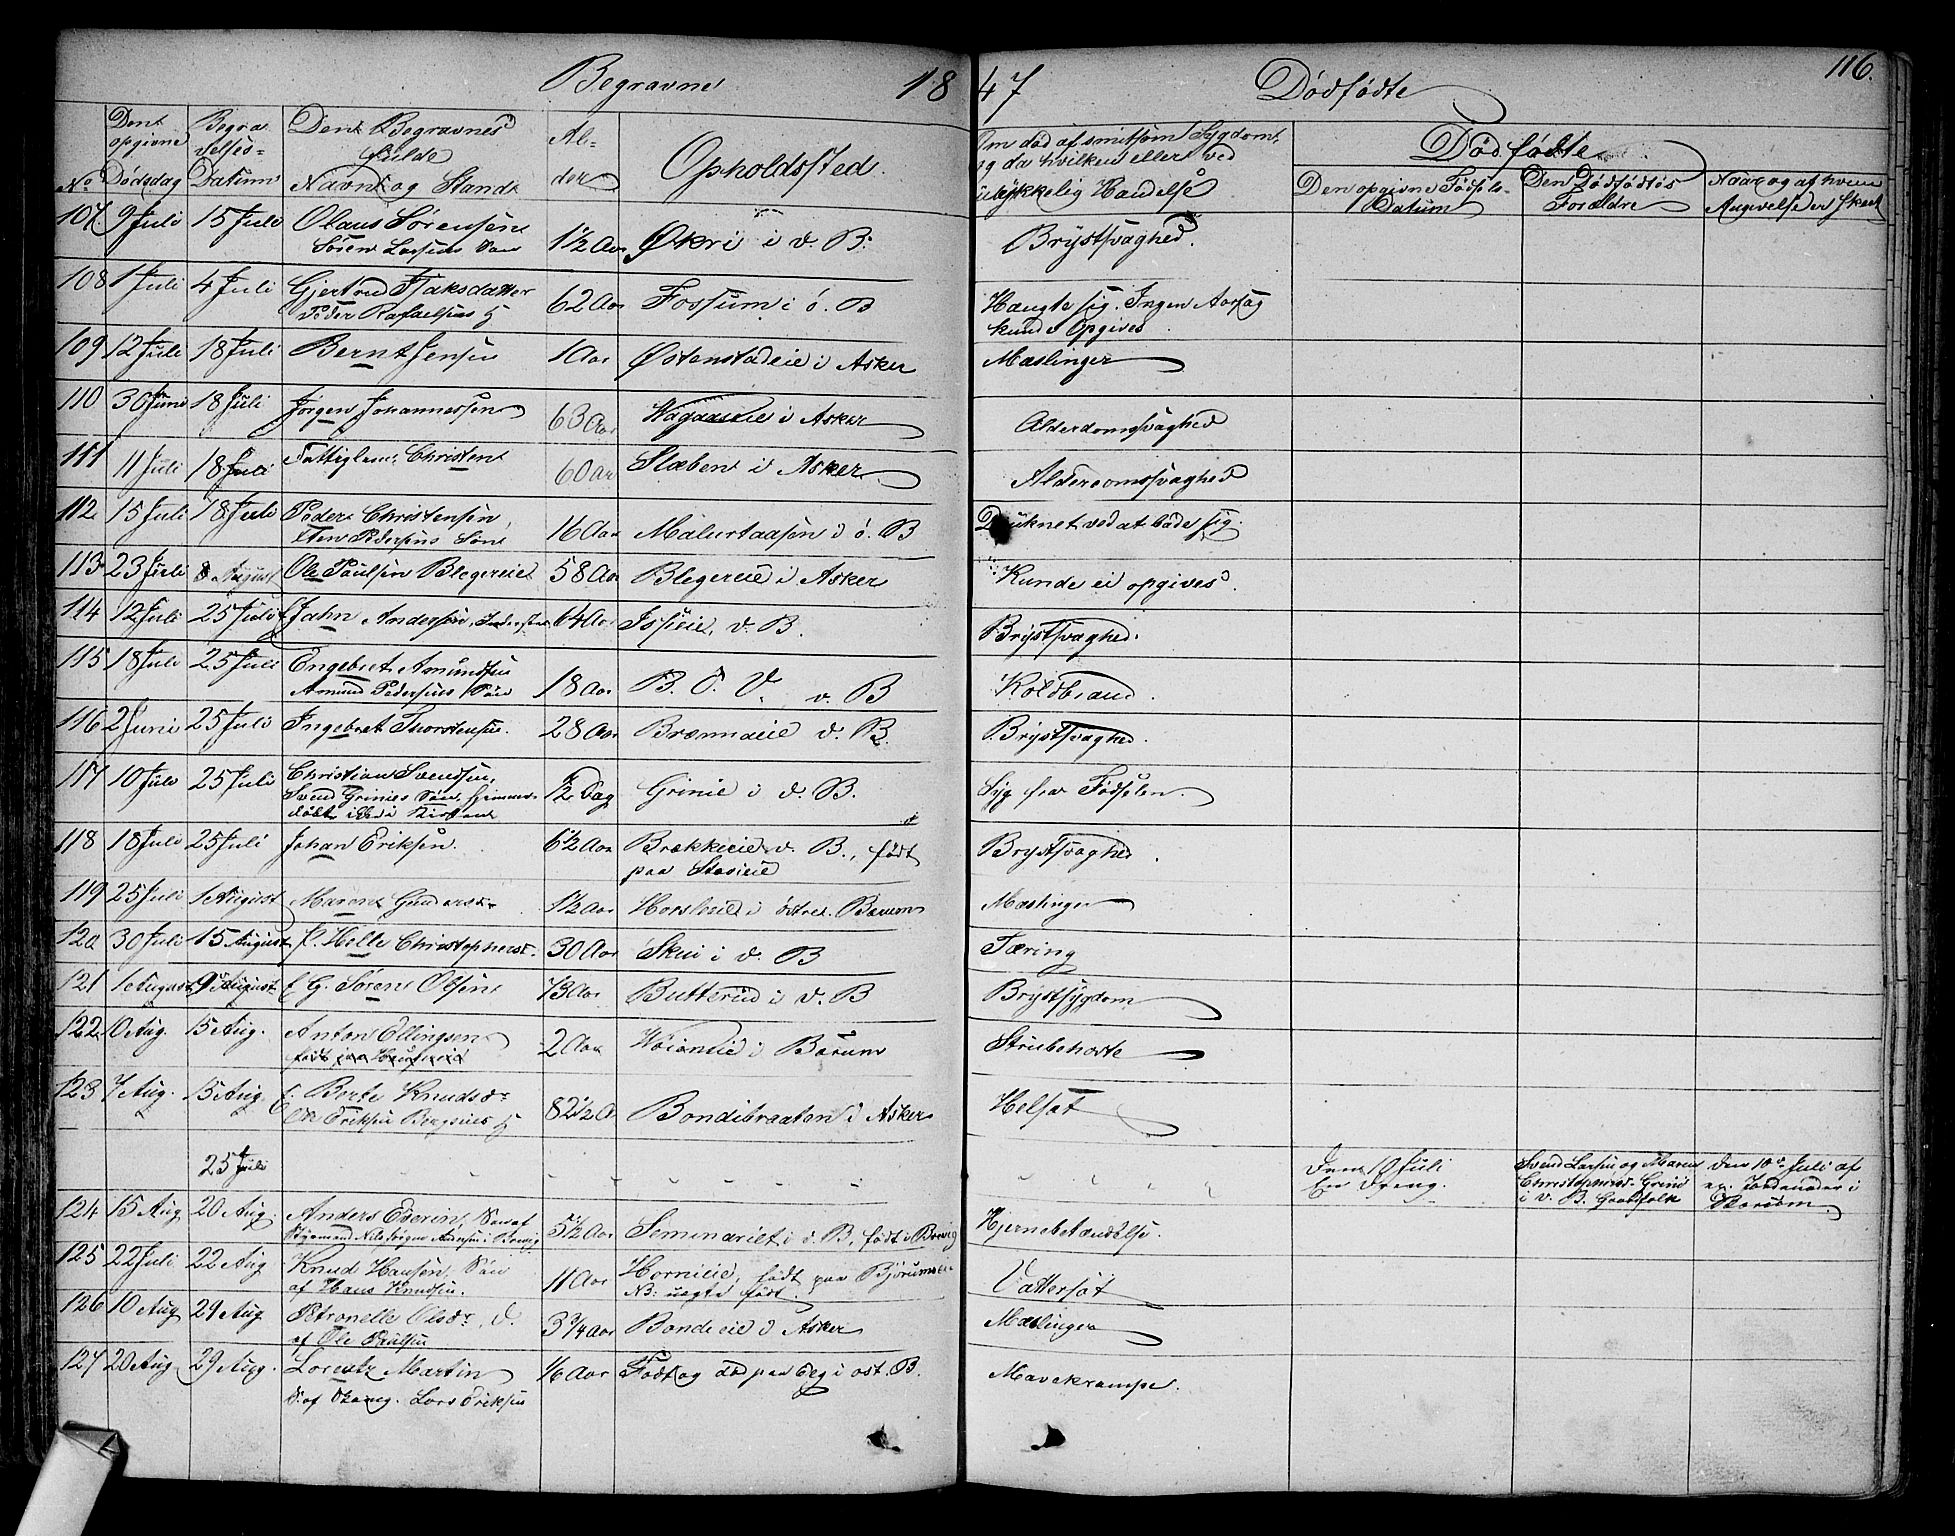 Begravne 1847 Dødfødte 116.
No
Den opgivne Dødsdag
Begravelses-Datum
Den Begravnes fulde Navn og Stand
Alder
Opholdssted.
Om død af smitsom Sygdom, og da hvilken eller ved ulykkelig Hændelse
Dødfødte
Den opgivne Fødsels-Datum
Den Dødfødtes Forældre
Naar og af hvem Angivelse er skeet
107. 9 Juli 15 Juli Olaus Sørensen 1½ Aar Økri i v. B: Brystsvaghed.
Søren Larsens Søn
108 1 Juli 4 Juli Gjertrud Isaksdatter 62 Aar Fossum i ö. B Hængte sig. Ingen Aarsag
Peder Rafaelsens H kunde Opgives
109 12 Juli 18 Juli Bernt Jensen 1 Aar Østenstadeie i Asker Mæslinger
110 30 Juni 18 Juli Jörgen Johannessen 63 Aar i Asker Alderdomssvaghed
111 11 Juli 18 Juli Fattiglem Christen 60 Aar Slæben i Asker Alderdomssvaghed
112 15 Juli 18 Juli Peder Christensen, 16 Aar i ö. B Druknet ved at bade sig.
Pedersens Søn
113 23 Juli 8 August Ole Paulsen Blegereie 58 Aar Blegereie i Asker Kunde ei opgives.
114 12 Juli 25 Juli f. Jahn Andersen, 64 Aar v. B. Brystsvaghed.
115 18 Juli 25 Juli Engebret Amundsen 18 Aar B. O. V. v. B Koldbrand.
Amund Pedersens Søn
116 2 Juni 25 Juli Ingebret Thorstensen. 28 Aar v. B. Brystsvaghed.
117 10 Juli 25 Juli Christian Svendsen, ½ Dag Grinie i v. B. Syg fra Fødselen.
Svend Grinies Søn, Hjemme-
døbt
118 18 Juli 25 Juli Johan Eriksen. 6½ Aar Brækkieie v. B., født Brystsvaghed.
paa
119 25 Juli 1 August Maren Gundersdr 1½ Aar i östre Bærum Mæslinger
120 30 Juli 15 August f. Helle Christophersd. 30 Aar Skui i v. B Tæring
121 1 August 9 August f G. Sören Olsen 73 Aar Butterud i v. B Brystsygdom
122 10 Aug. 15 Aug. Anton Ellingsen 2 Aar i Bærum Strubehoste
født paa
123 7 Aug. 15 Aug. f. Berte Knudsdr 82½ A. Bondibraaten i Asker Helsot
Ole Eriksen H
25 Juli " " " " " " " Den 10 Juli Svend Larsen og Maren den 10de Juli af
En Dreng. Christophersd. Grini ex. Jordemoder i
i v. B. Gaardfolk Bærum.
124 15 Aug 20 Aug. Anders Edvin, Søn af 5½ Aar Seminariet i v. B, født i Brevig Hjernebetændelse.
Andersen i Brevig
125 22 Juli 22 Aug Knud Hansen, Søn 11 Aar Hornieie, født paa Bjørumseie Vattersot
af Hans Knudsen. NB: uegte født.
126 10 Aug 29 Aug Petronelle Olsdr, D. 3¾ Aar Bondeeie i Asker Mæslinger
af Ole Paulsen
127 20 Aug 29 Aug. Lorentz Martin ⅙ Aar Født og paa i øst. B. Mavekrampe.
S. af Lars Eriksen